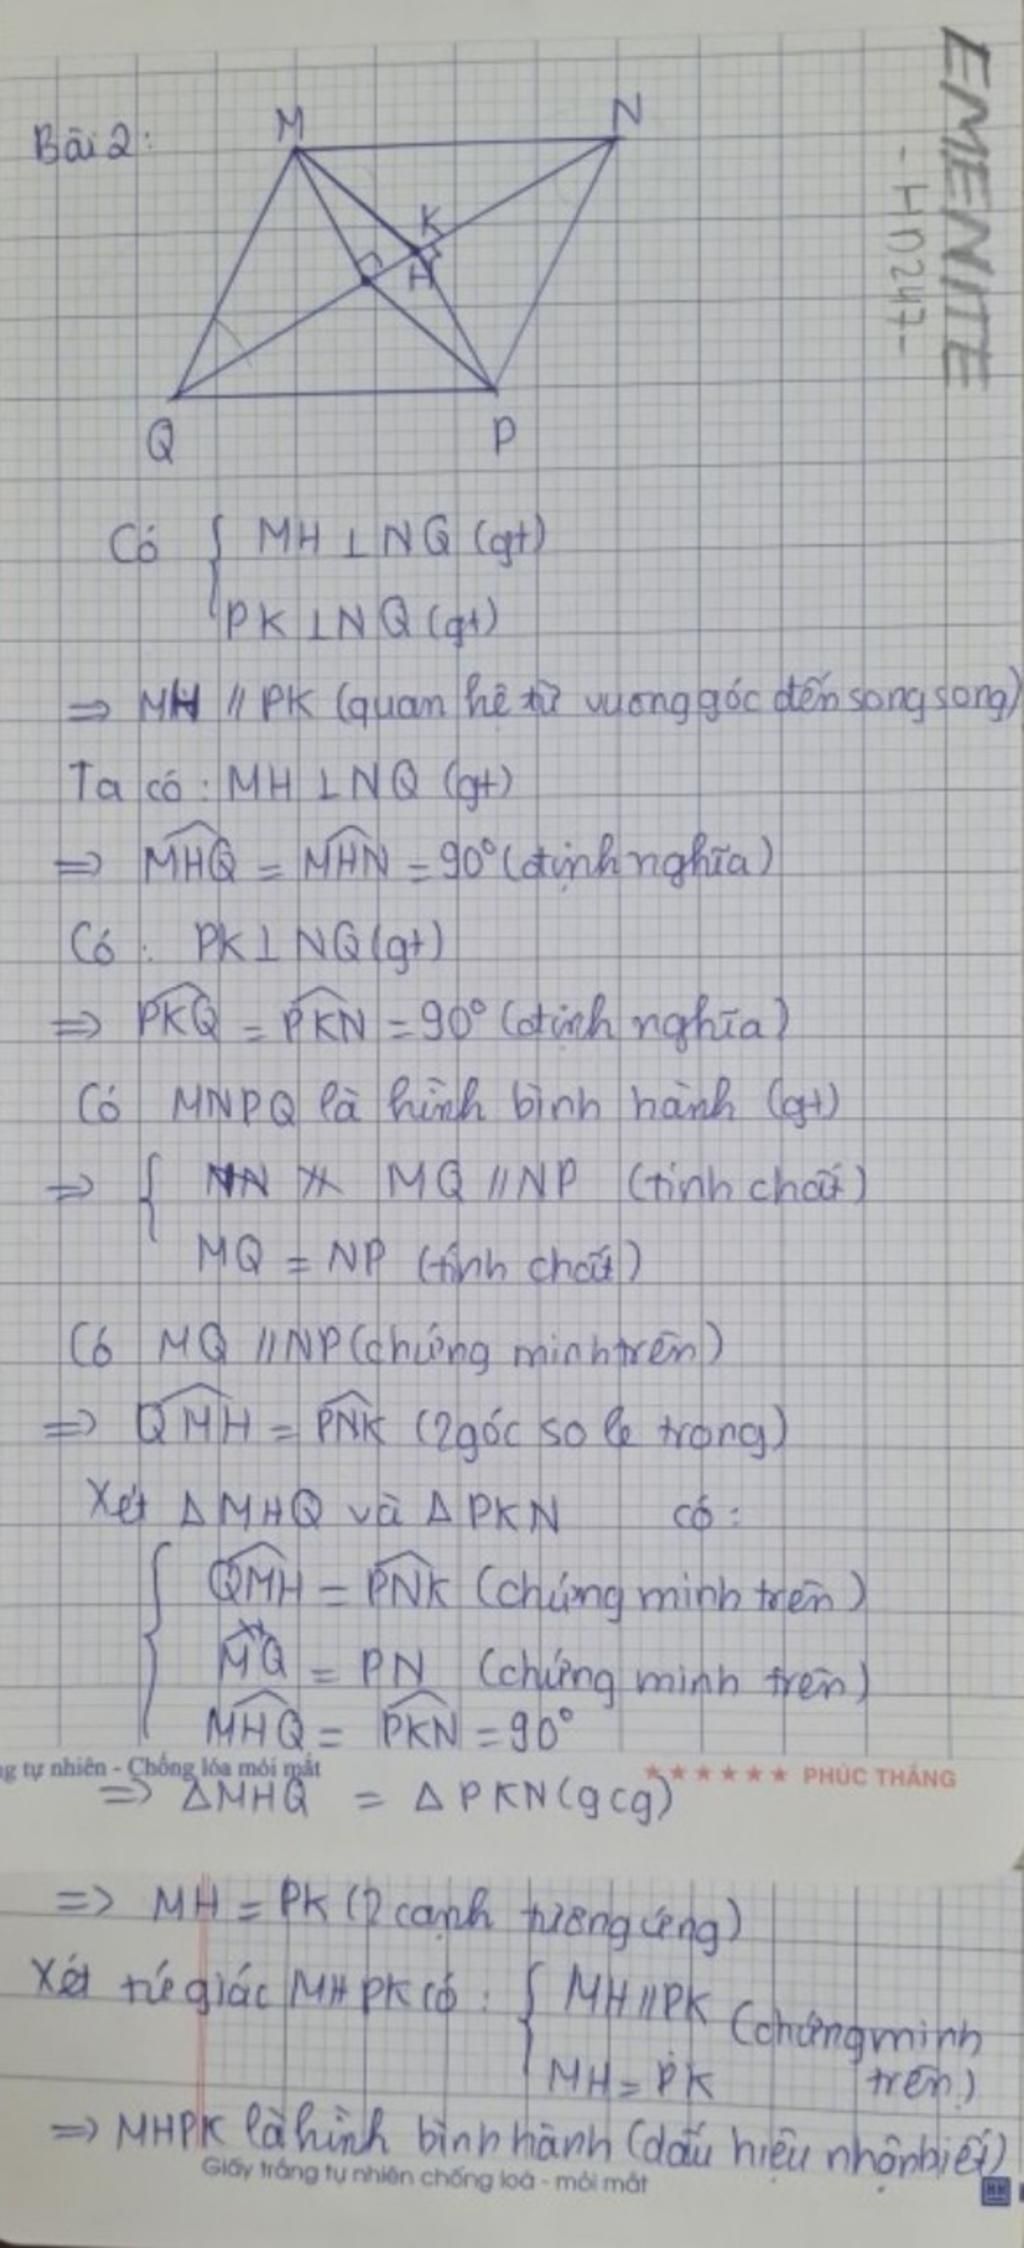 EMENITE
- HD247 -
Bài 2:
M
N
K
H
Q
P
Có { MH ⊥ NQ (gt)
PK ⊥ NQ (gt)
=> MH // PK (quan hệ từ vuông góc đến song song)
Ta có : MH ⊥ NQ (gt)
=> MHQ = MHN = 90° (định nghĩa)
Có : PK ⊥ NQ (gt)
=> PKQ = PKN = 90° (định nghĩa)
Có MNPQ là hình bình hành (gt)
=> { MQ // NP (tính chất)
MQ = NP (tính chất)
Có MQ // NP (chứng minh trên)
=> QMH = PNK (2 góc so le trong)
Xét Δ MHQ và Δ PKN có :
{ QMH = PNK (chứng minh trên)
MQ = PN (chứng minh trên)
MHQ = PKN = 90°
ng tự nhiên - Chống lóa mỏi mắt
★★★★★★ PHÚC THẮNG
=> ΔMHQ = Δ PKN (gcg)
=> MH = PK (2 cạnh tương ứng)
Xét tứ giác MHPK có : { MH // PK (chứng minh
MH = PK trên)
=> MHPK là hình bình hành (dấu hiệu nhận biết)
Giấy trắng tự nhiên chống loá - mỏi mắt